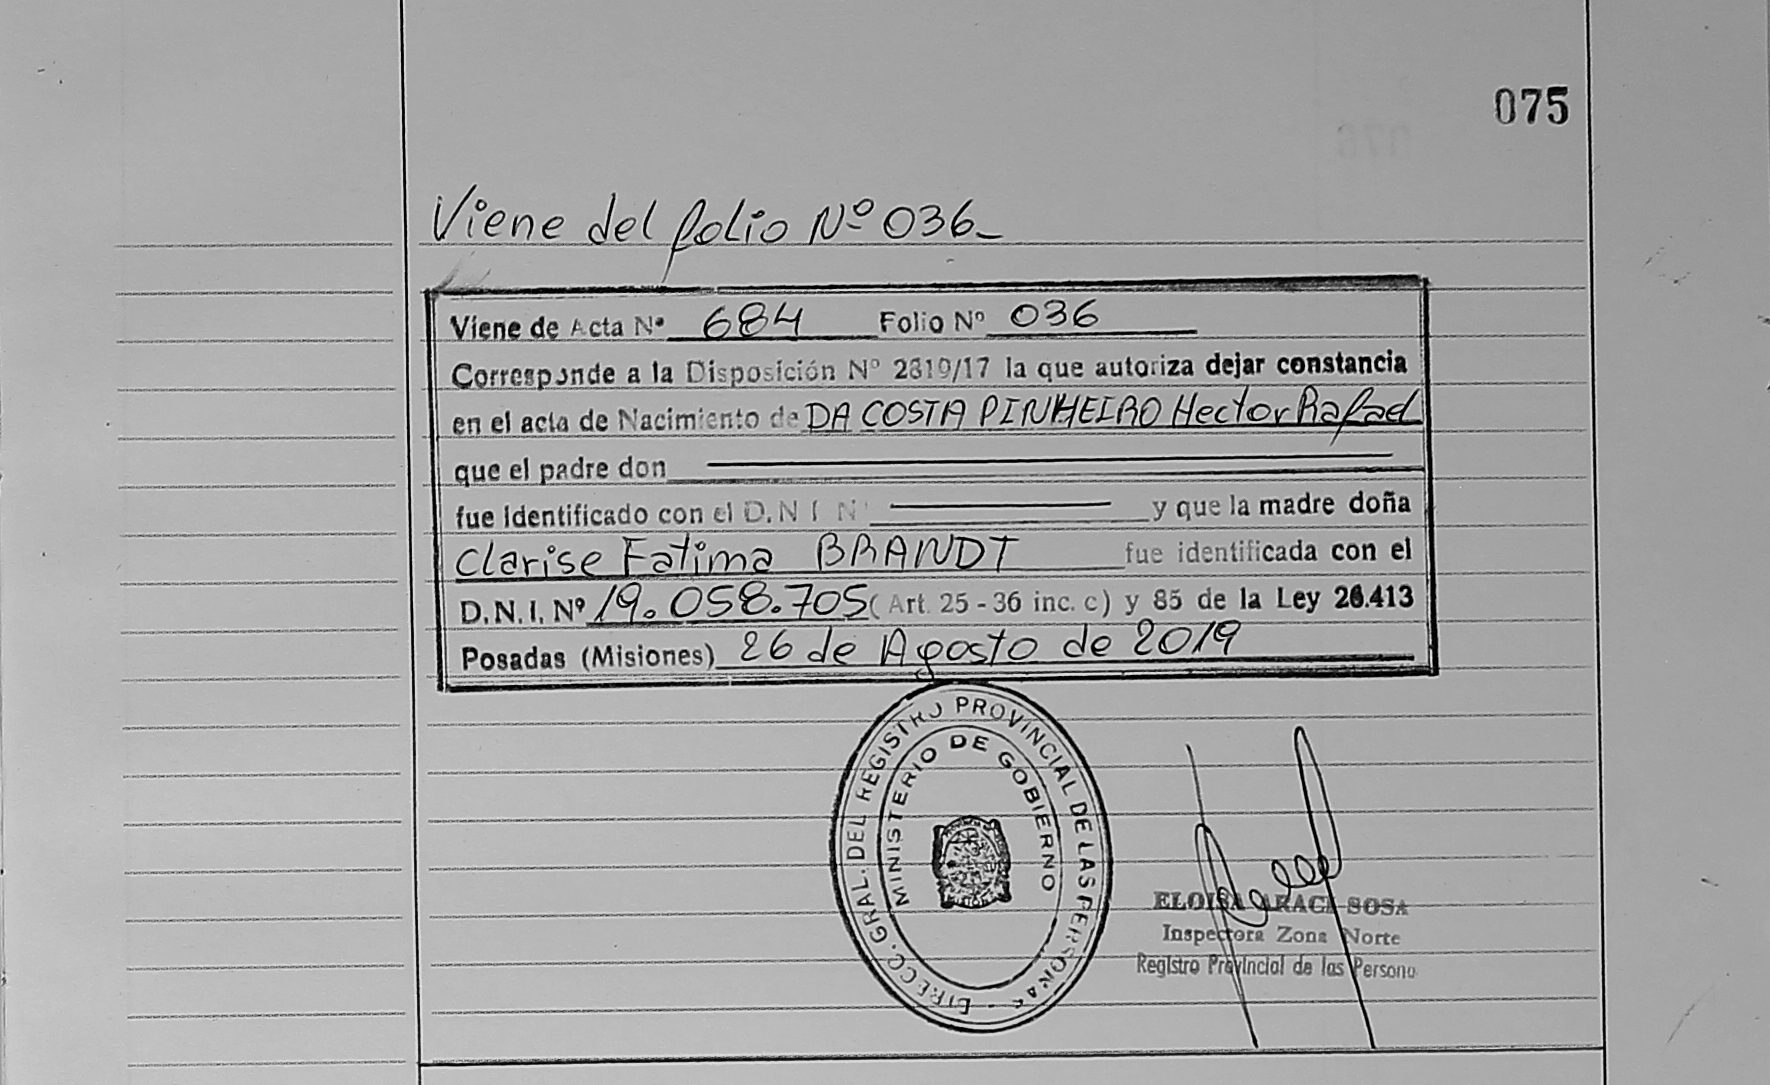 075
Viene del folio Nº 036_
Viene de Acta Nº 684 Folio Nº 036
Corresponde a la Disposición Nº 2819/17 la que autoriza dejar constancia
en el acta de Nacimiento de DA COSTA PINHEIRO Hector Rafael
que el padre don
fue Identificado con el D.N.I N° y que la madre doña
Clarise Fatima BRANDT fue identificada con el
D.N.I. Nº 19.058.705 (Art. 25 - 36 inc. c) y 85 de la Ley 26.413
Posadas (Misiones) 26 de Agosto de 2019
DIRECC. GRAL. DEL REGISTRO PROVINCIAL DE LAS PERSONAS
MINISTERIO DE GOBIERNO
ELOISA SOSA
Inspectora Zona Norte
Registro Provincial de las Persona